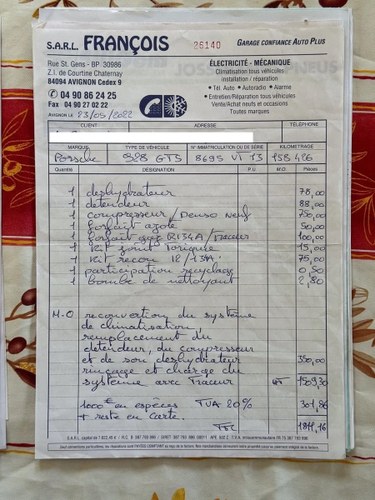 S.A.R.L. FRANÇOIS
25140
GARAGE CONFIANCE AUTO PLUS
Rue St. Gens - BP. 30986
Z.I. de Courtine Chaternay
84094 AVIGNON Cedex 9
✆ 04 90 86 24 25
Fax 04 90 27 02 22
AVIGNON LE 23/05/2022
ÉLECTRICITÉ - MÉCANIQUE
Climatisation tous véhicules
installation / réparation
• Tél. Auto • Autoradio • Alarme
• Entretien/Réparation tous véhicules
Vente/Achat neufs et occasions
Toutes marques
CLIENT ADRESSE TÉLÉPHONE
MARQUE TYPE DE VÉHICULE N° IMMATRICULATION OU DE SÉRIE KILOMÉTRAGE
Porsche 928 GTS 8695 VT 13 158 426
Quantités DÉSIGNATION P.U. M.O. Pièces
1 deshydrateur 78,00
1 detendeur 88,00
1 compresseur/Denso neuf 750,00
1 forfait azote 50,00
1 forfait gaz R134A/Traceur 100,00
1 joint Torique 15,00
1 Kit recon 12/134 75,00
1 participation recyclage 0,50
1 bombe de nettoyant 2,80
M-O reconvertion du système
de climatisation,
remplacement du
détendeur, du compresseur
et de son deshydrateur 350,00
rinçage et charge du
système avec Traceur HT 1509,30
1000€ en espèces TVA 20% 301,86
+ reste en Carte.
TTC 1811,16